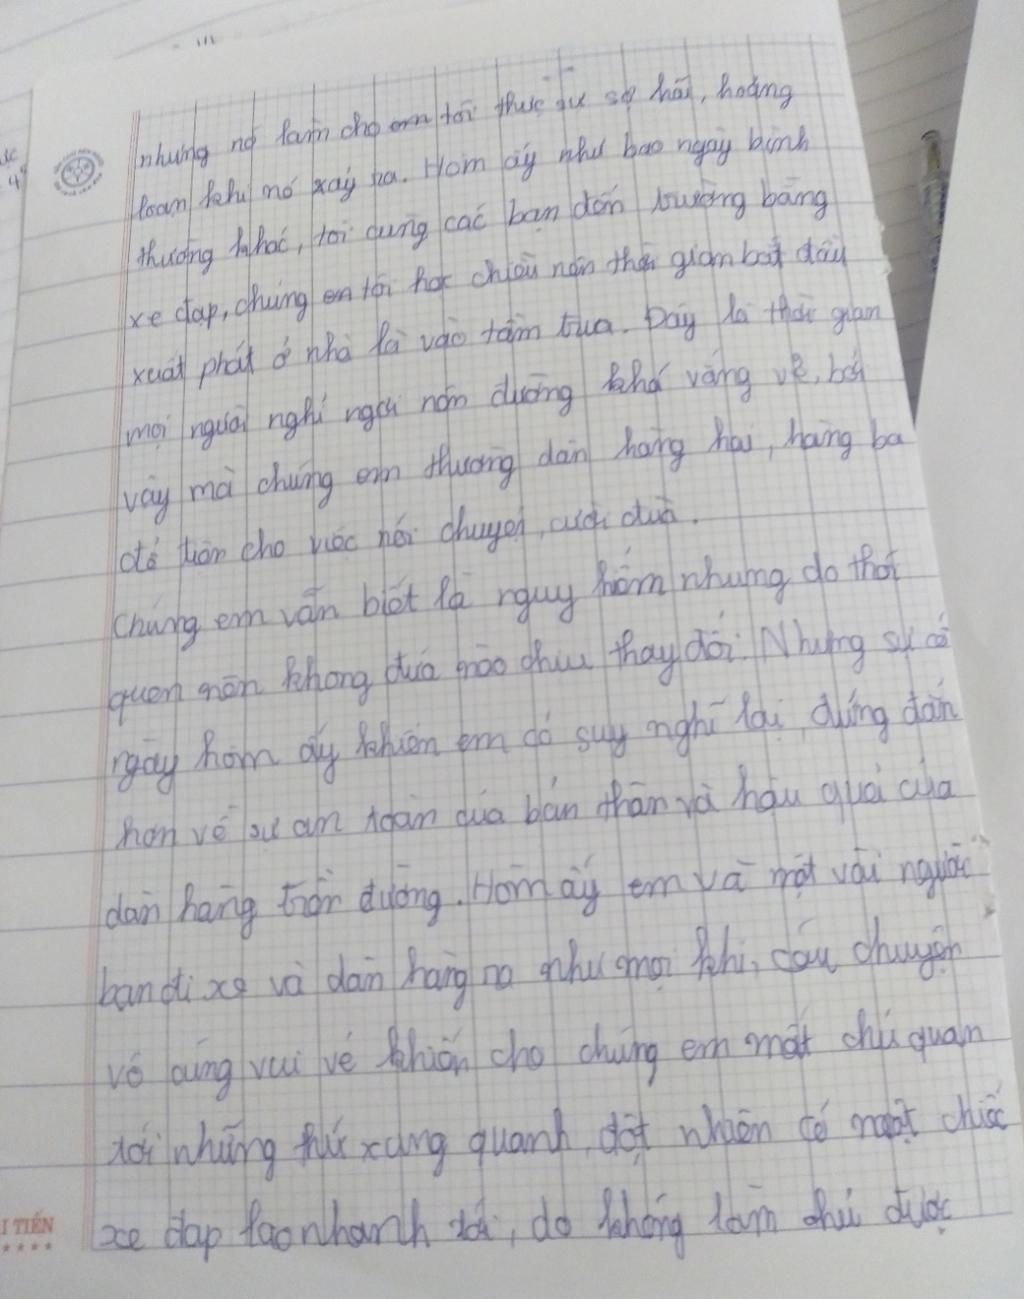 nhưng nó làm cho em tôi thực sự sợ hãi, hoảng
loạn khi nó xảy ra. Hôm ấy như bao ngày bình
thường khác, tôi cùng các bạn đến trường bằng
xe đạp, chúng em tôi học chiều nên thời gian bắt đầu
xuất phát ở nhà là vào tầm trưa. Đây là thời gian
mọi người nghỉ ngơi nên đường khá vắng vẻ, bởi
vậy mà chúng em thường dàn hàng hai, hàng ba
để tiện cho việc nói chuyện, cười đùa.
Chúng em vẫn biết là nguy hiểm nhưng do thói
quen nên không đứa nào chịu thay đổi. Nhưng sự cố
ngày hôm ấy khiến em có suy nghĩ lại, đúng đắn
hơn về sự an toàn của bản thân và hậu quả của
dàn hàng trên đường. Hôm ấy em và một vài người
bạn đi xe và dàn hàng ra như mọi khi, câu chuyện
vô cùng vui vẻ khiến cho chúng em mất chủ quan
tới những thứ xung quanh, đột nhiên có một chiếc
xe đạp lao nhanh tới, do không làm chủ được
I TIẾN